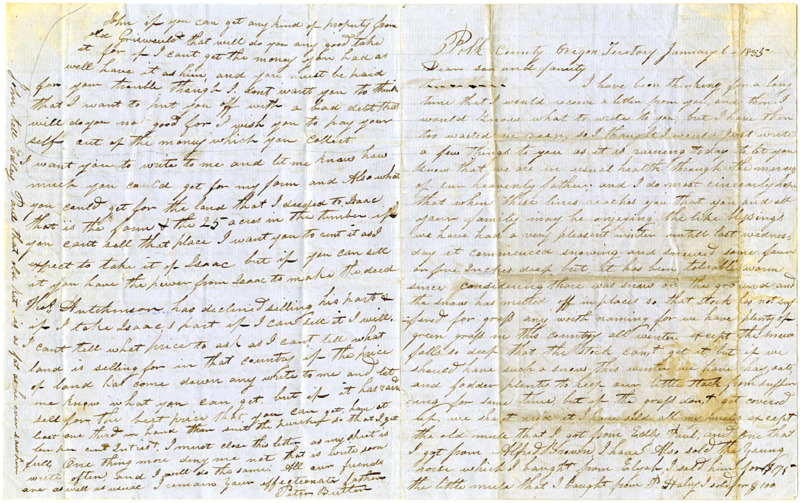 Polk County Oregon Teretory January 6 1855
Dear son and family
I have been thinking for a long
time that I would receive a letter from you, and then I
would know what to write to you but I have then
too waited in so I thought I would just write
a few things to you as it is raining to day to let you
know that we are in usual health through the mercy
of our heavenly father. and I do most cincearly hope
that when these lines reaches you that you and all
your family may be enjoying the like blessings
we have had a very pleasent winter untill last wednes
day it commenced snowing and snowed some four
or five inches deep but it has been tolerable warm
since considering there was snow on the ground and
the snow has melted off in places so that stock has not suf
fered for grass any worth naming for we have plenty of
green grass in this country all winter except the snow
falls so deep that the stock cant get it but if we
should have such a snow this winter we have hay, oat,
and fodder plenty to keep our little stock from suffer
ing for some time, but if the grass dont get covered
up, we shant need it I have sold all my mules except
the old mule that I got from Eddy Paul, and one that
I got from Alfred Brown I have Also sold the young
horse which I baught from Elijah I sold him for $175
the little mule that I baught from P. Haley I sold for $100
John if you can get any kind of property from
old that will do you any good take
it for if I cant get the money you had as
well have it as him, and you must be paid
for your trouble though I dont want you to think
that I want to put you off with a bad debt that
will do you not good for I wish you to pay your
self out of the money which you collect
I want you to write to me and let me know how
much you could get for my farm and Also what
you could get for the land that I deeded to Isaac
that is the farm & the 25 acres in the timber if
you cant sell that place I want you to rent it as I
expect to take it of Isaac but if you can sell
it you have the power from Isaac to make the deed
Hutchinson has declined selling his part &
if I take Isaac's part if I can sell it I will.
I cant tell what price to ask as I cant tell what
land is selling for in that country if the price
of land has come down any write to me and let
me know what you can get but if it has raised
sell for the best price that you can get, have at
least one third in hand then suit the purchaser so that I get
ten per cent Int. I must close this letter as my sheet is
full One thing more deny me not that is write soon
write often, and I will do the same. All our friends
are as well as usual I remain your affectionate father
Peter Butler
John tell Eddy Paul that his is as fat as